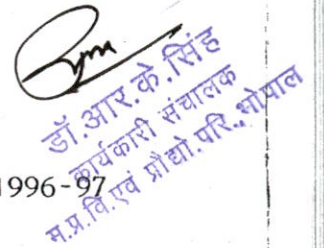 डॉ.आर.के.सिंह
कार्यकारी संचालक
म.प्र.वि.एवं प्रौद्यो.परि.,भोपाल
1996-97